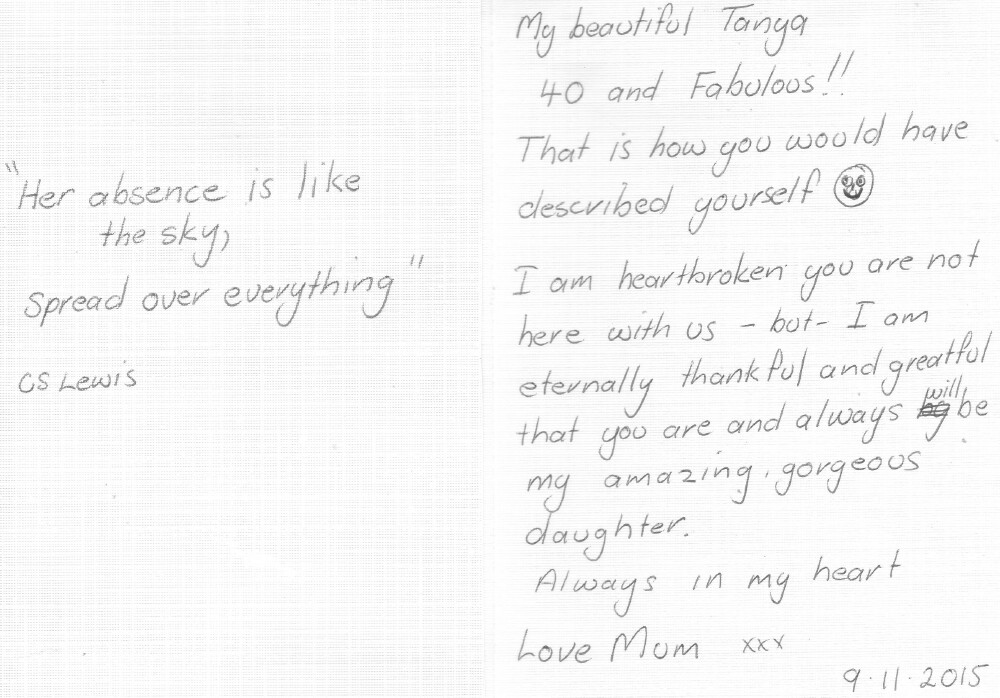 "Her absence is like
the sky,
Spread over everything"
CS Lewis
My beautiful Tanya
40 and Fabulous!!
That is how you would have
described yourself
I am heartbroken you are not
here with us - but - I am
eternally thankful and greatful
that you are and always will be
my amazing, gorgeous
daughter.
Always in my heart
Love Mum xxx
9.11.2015